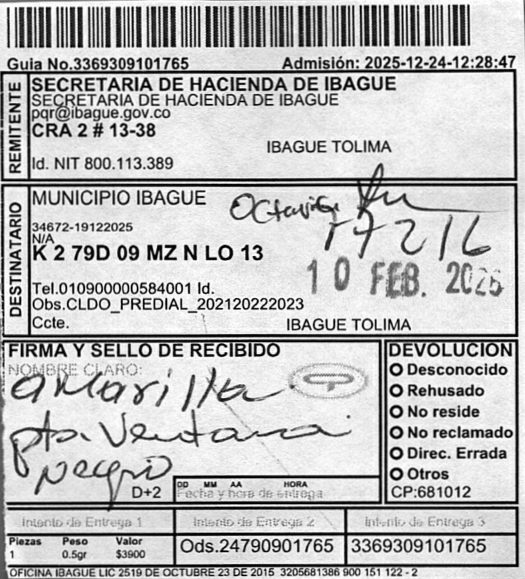 Guia No.3369309101765 Admisión: 2025-12-24-12:28:47
REMITENTE
SECRETARIA DE HACIENDA DE IBAGUE
SECRETARIA DE HACIENDA DE IBAGUE
pqr@ibague.gov.co
CRA 2 # 13-38
IBAGUE TOLIMA
Id. NIT 800.113.389
DESTINATARIO
MUNICIPIO IBAGUE
34672-19122025
N/A
K 2 79D 09 MZ N LO 13
17216
10 FEB. 2026
Tel.010900000584001 Id.
Obs.CLDO_PREDIAL_202120222023
Ccte.
IBAGUE TOLIMA
FIRMA Y SELLO DE RECIBIDO
NOMBRE CLARO:
amarilla
pta. Ventana
negro
D+2
DD MM AA HORA
Fecha y hora de entrega
DEVOLUCION
Desconocido
Rehusado
No reside
No reclamado
Direc. Errada
Otros
CP:681012
Intento de Entrega 1 Intento de Entrega 2 Intento de Entrega 3
Piezas Peso Valor
1 0.5gr $3900
Ods.24790901765 3369309101765
OFICINA IBAGUE LIC 2519 DE OCTUBRE 23 DE 2015 3205681386 900 151 122 - 2